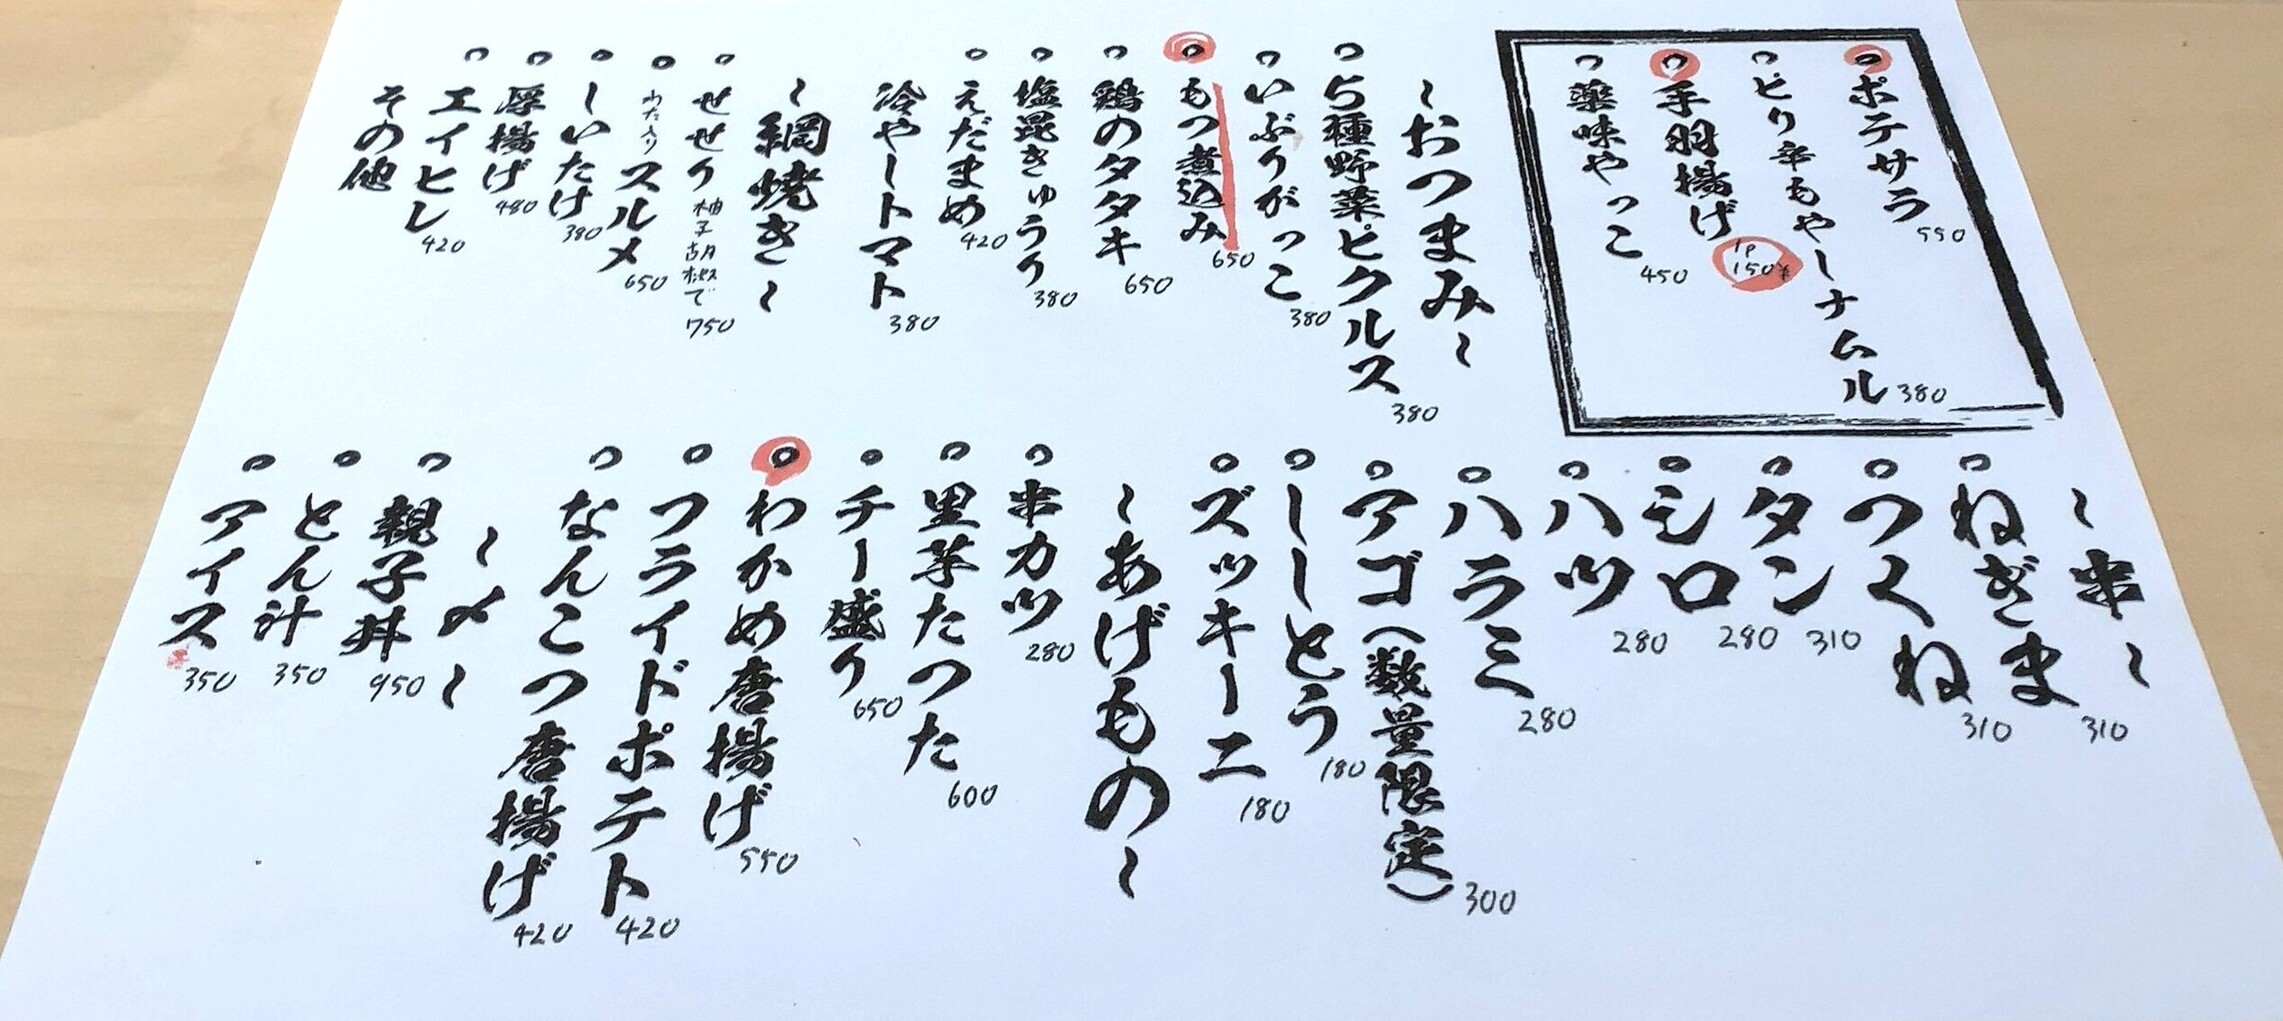 ポテサラ 550
ピリ辛もやしナムル 380
手羽揚げ 1P 150¥
薬味やっこ 450
~おつまみ~
5種野菜ピクルス 380
いぶりがっこ 380
もつ煮込み 650
鶏のタタキ 650
塩昆きゅうり 380
えだまめ 420
冷やしトマト 380
~網焼き~
せせり 柚子胡椒で 750
わた入りスルメ 650
しいたけ 380
厚揚げ 480
エイヒレ 420
その他
~串~
ねぎま 310
つくね 310
タン 310
シロ 280
ハツ 280
ハラミ 280
アゴ(数量限定) 300
ししとう 180
ズッキーニ 180
~あげもの~
串カツ 280
里芋たつた 600
チー盛り 650
わかめ唐揚げ 550
フライドポテト 420
なんこつ唐揚げ 420
~〆~
親子丼 950
とん汁 350
アイス 350